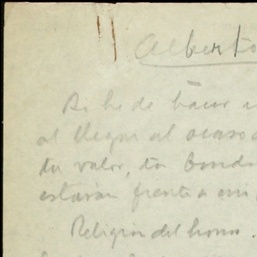 Alberto
Si he de hacer
al llegar al ocaso
tu valor, tu bond
estarán frente a mi
Religion del honor.